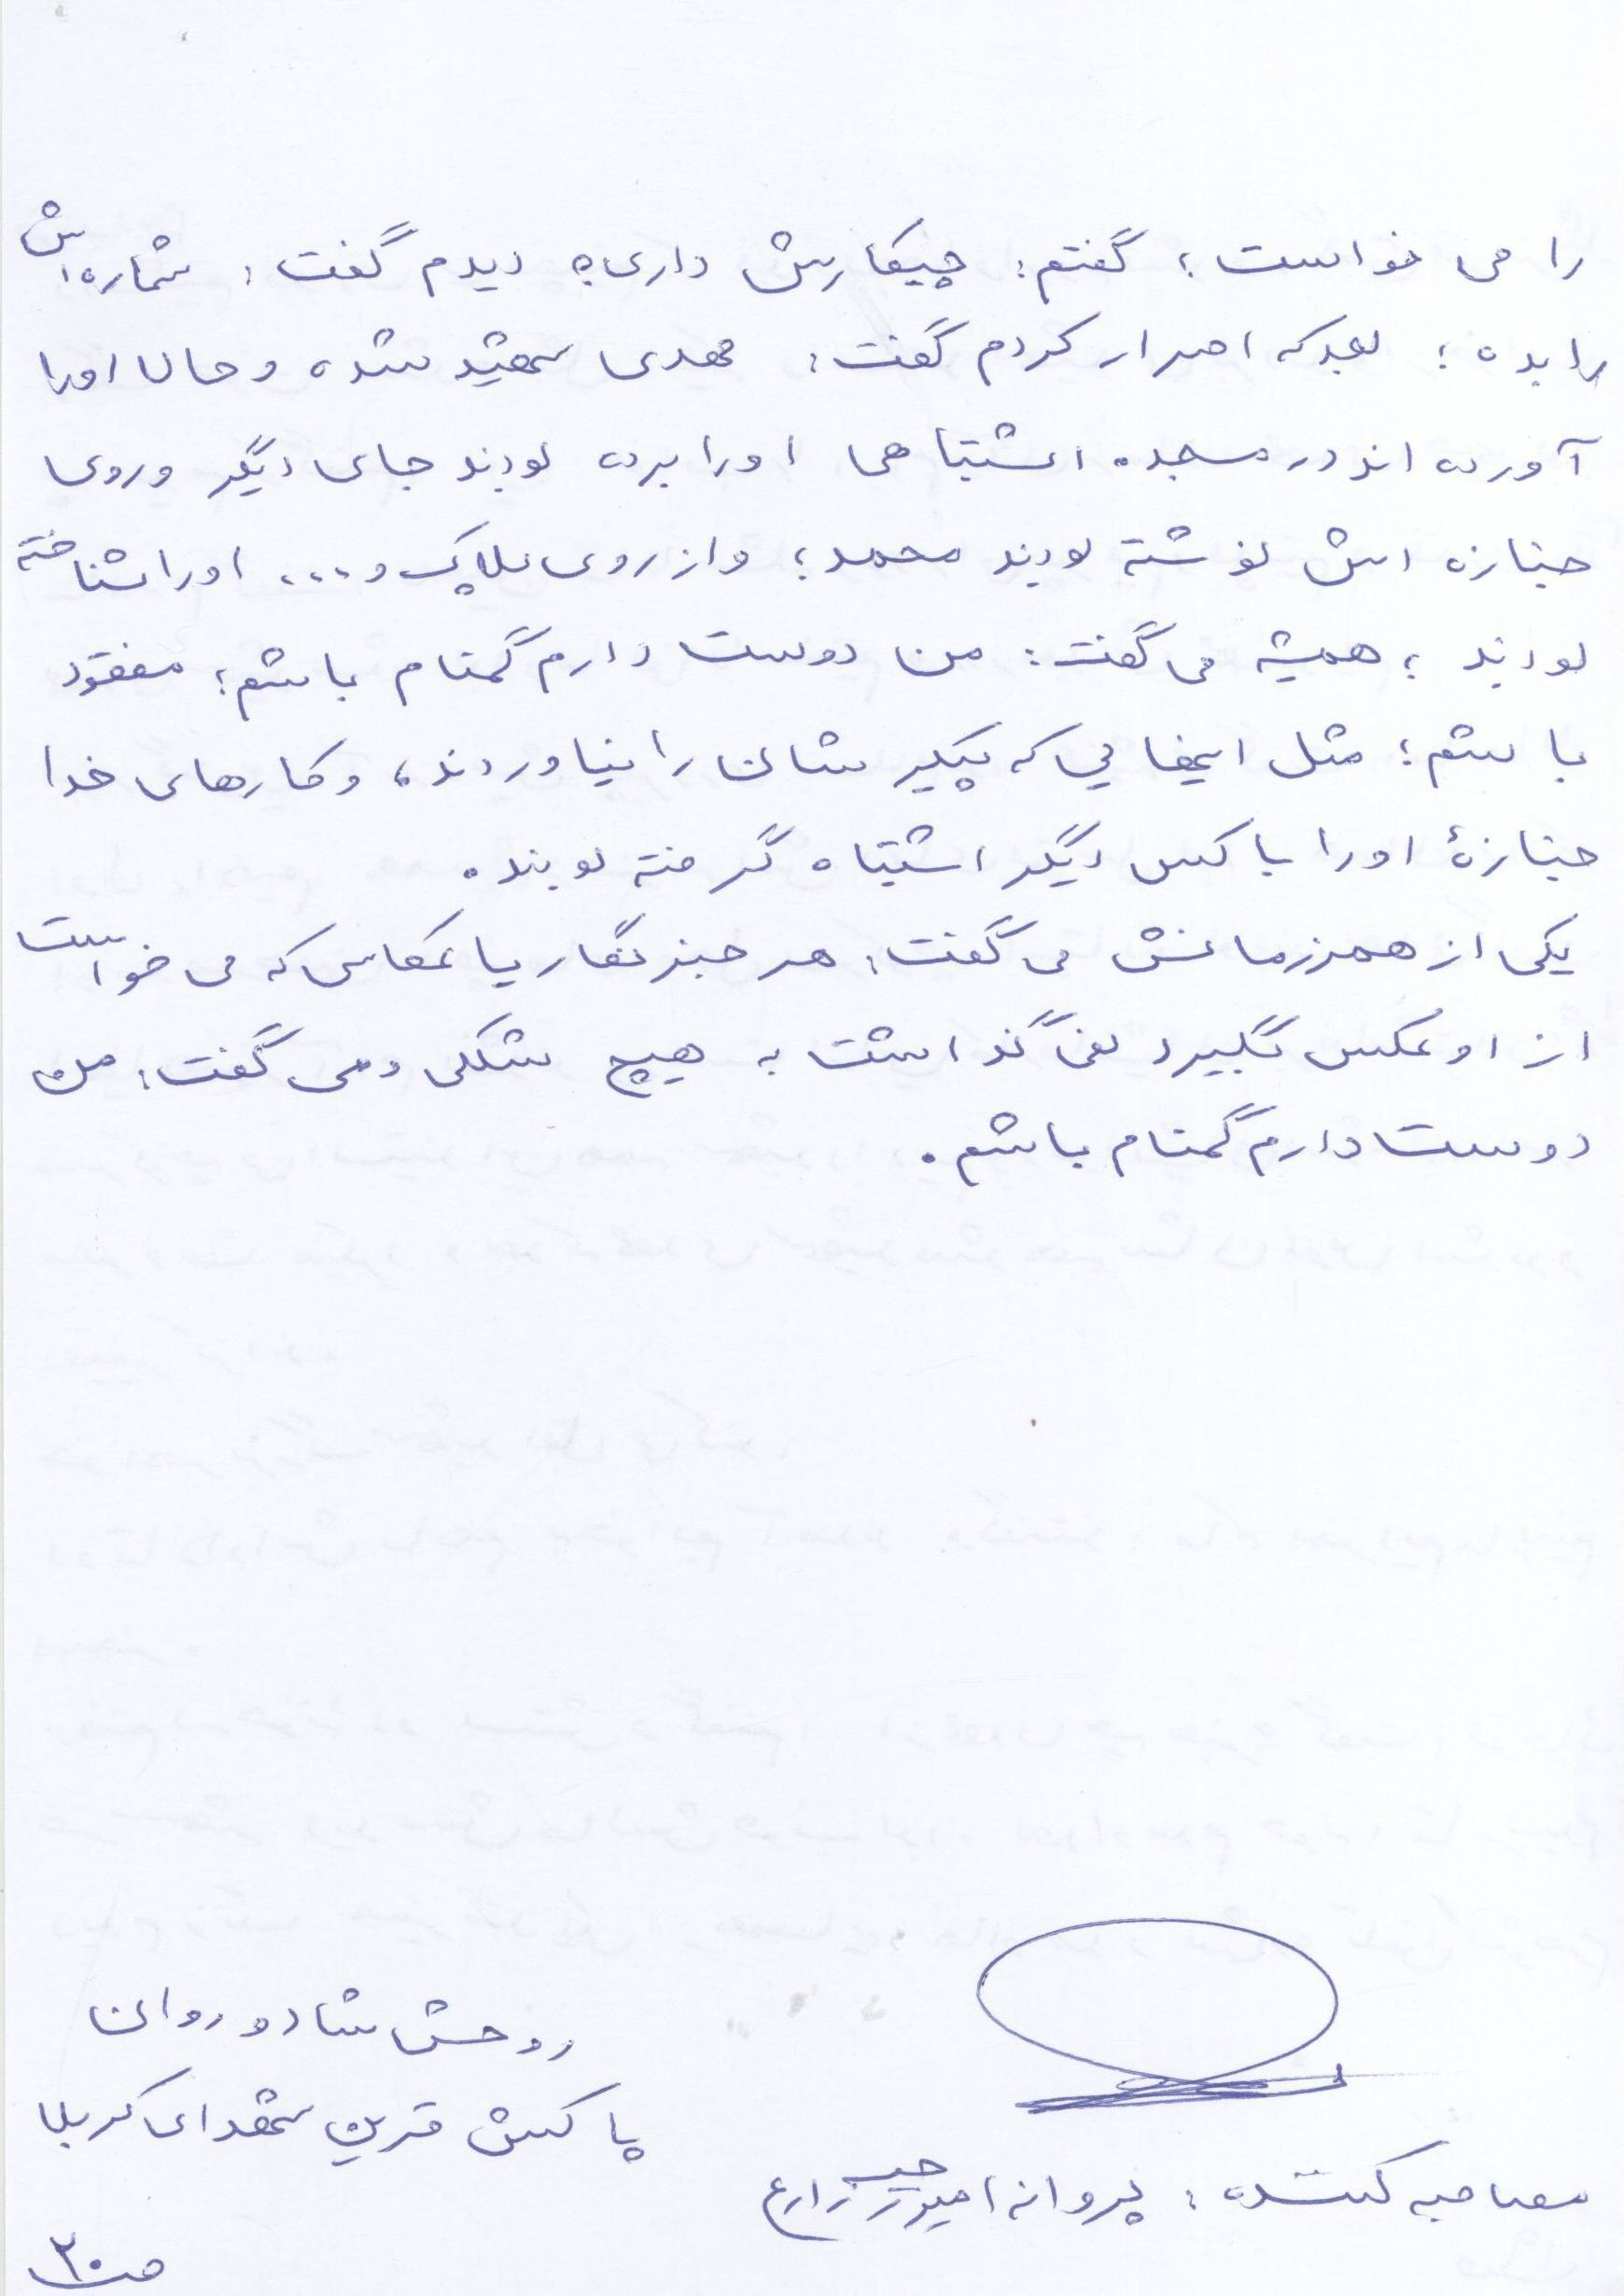 را می خواست؛ گفتم: چیکارش داری؟ دیدم گفت: شماره اش
را بده؛ بعد که اصرار کردم گفت: مهدی شهید شده و حالا او را
آورده اند در مسجد. اشتباهی او را برده بودند جای دیگر و روی
جنازه اش نوشته بودند محمد؛ و از روی پلاک و... او را شناخته
بودند؛ همیشه می گفت: من دوست دارم گمنام باشم؛ مفقود
باشم؛ مثل اینهایی که پیکرشان را نیاوردند، و کارهای خدا
جنازهٔ او را با کس دیگر اشتباه گرفته بودند.
یکی از همرزمانش می گفت: هر خبرنگار یا عکاسی که می خواست
از او عکس بگیرد نمی گذاشت به هیچ شکلی و می گفت: من
دوست دارم گمنام باشم.
روحش شاد و روان
پاکش قرین شهدای کربلا
مصاحبه کننده: پروانه زارع
ص ۲۰